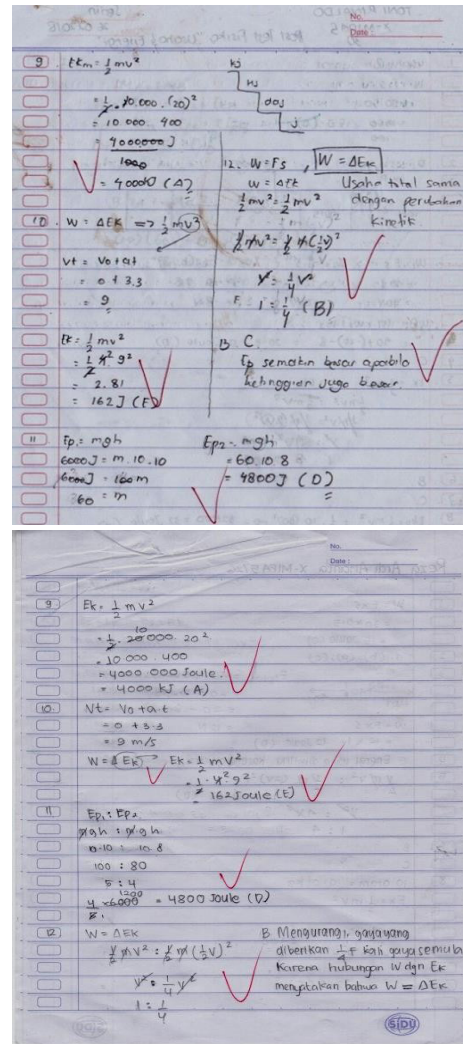 No.
Date :
9. Ekm = 1/2 mv²
= 1/2 . 20.000 . (20)²
= 10.000 . 400
= 4000000 J
1000
= 4000kJ (A)
10. W = ΔEK => 1/2 mv²
Vt = Vo + at
= 0 + 3.3
= 9
Ek = 1/2 mv²
= 1/2 4² 9²
= 2.81
= 162 J (E)
11 Ep₁ = mgh
6000J = m.10.10
6000J = 100 m
60 = m
Ep₂ = mgh
= 60.10 8
= 4800 J (D)
kj
hj
daj
j
12. W = Fs , W = ΔEk
W = ΔEk Usaha total sama
1/2 mv² = 1/2 mv² dengan perubahan
kinetik
1/2 mv² = 1/2 m(1/2 v)²
v² = 1/4 v²
F. 1 = 1/4 (B)
13 C
Ep semakin besar apabila
ketinggian juga besar.
No.
Date :
9 Ek = 1/2 mv²
10
= 1/2 . 20000 . 20²
= 10 000 . 400
= 4000.000 Joule
= 4000 KJ (A)
10. Vt = Vo + a.t
= 0 + 3.3
= 9 m/s
W = Δ Ek Ek = 1/2 mV²
= 1/2 . 4² 9²
= 162 Joule (E)
11 Ep₁ : Ep₂
mgh : mgh
10.10 : 10.8
100 : 80
5 : 4
1200
4/5 x 6000 = 4800 Joule (D)
12 W = ΔEK
1/2 mv² : 1/2 m (1/2 v)²
v² : 1/4 v²
1 : 1/4
B Mengurangi, gaya yang
diberikan 1/4 F kali gaya semula
Karena hubungan W dgn Ek
menyatakan bahwa W = ΔEK
SIDU